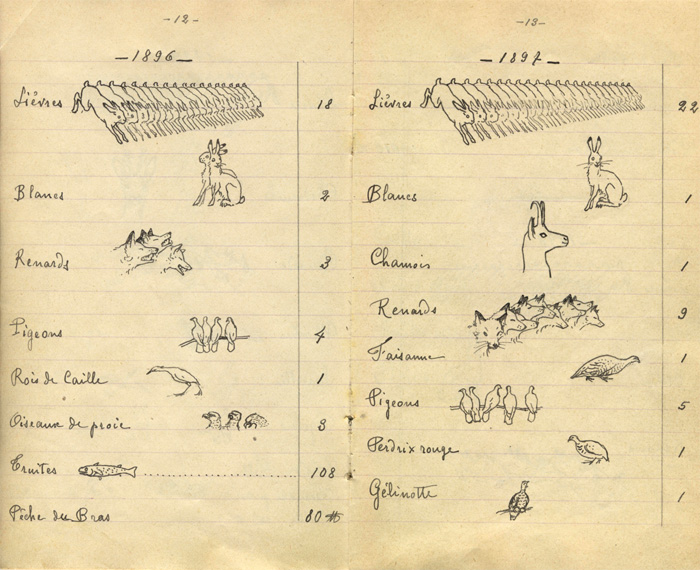 -12-
-1896-
Lièvres 18
Blancs 2
Renards 3
Pigeons 4
Rois de Caille 1
Oiseaux de proie 3
Truites 108
Pêche du Bras 80 ℔
-13-
-1897-
Lièvres 22
Blancs 1
Chamois 1
Renards 9
Faisanne 1
Pigeons 5
Perdrix rouge 1
Gélinotte 1